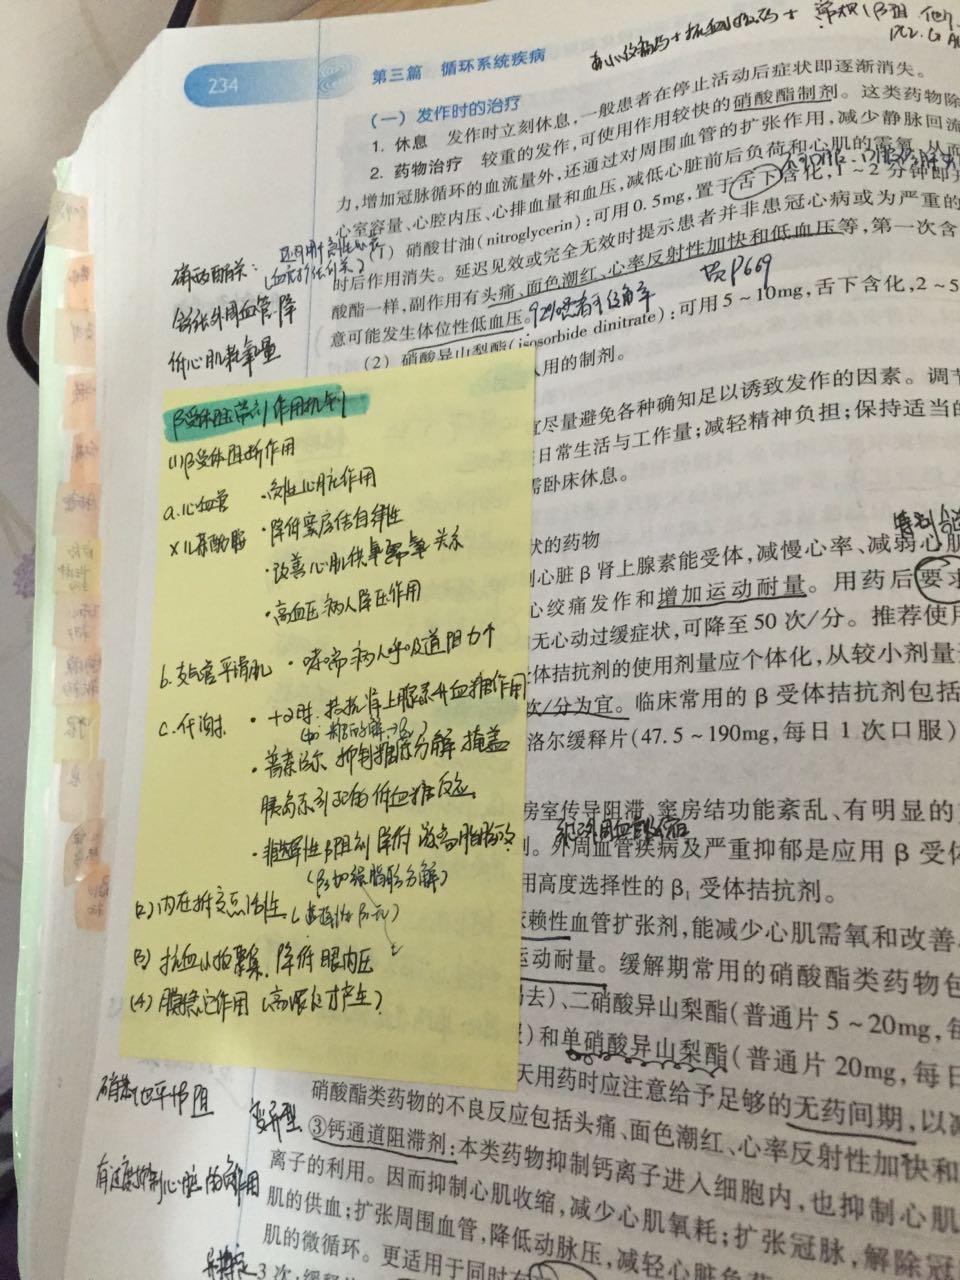 234
第三篇 循环系统疾病
(一)发作时的治疗
1. 休息 发作时立刻休息,一般患者在停止活动后症状即逐渐消失。
2. 药物治疗 较重的发作,可使用作用较快的硝酸酯制剂。这类药物除
力,增加冠脉循环的血流量外,还通过对周围血管的扩张作用,减少静脉回流
心室容量、心腔内压、心排血量和血压,减低心脏前后负荷和心肌的需氧,从而
(1) 硝酸甘油(nitroglycerin):可用0.5mg,置于舌下含化,1~2分钟即开
时后作用消失。延迟见效或完全无效时提示患者并非患冠心病或为严重的
酸酯一样,副作用有头痛、面色潮红、心率反射性加快和低血压等,第一次含
意可能发生体位性低血压。
见P669
(2) 硝酸异山梨酯(isosorbide dinitrate):可用5~10mg,舌下含化,2~5
入用的制剂。
舒张外周血管.降
低心肌耗氧量
宜尽量避免各种确知足以诱致发作的因素。调节
日常生活与工作量;减轻精神负担;保持适当的
需卧床休息。
状的药物
心脏β肾上腺素能受体,减慢心率、减弱心肌
心绞痛发作和增加运动耐量。用药后要求
无心动过缓症状,可降至50次/分。推荐使用
体拮抗剂的使用剂量应个体化,从较小剂量
次/分为宜。临床常用的β受体拮抗剂包括
洛尔缓释片(47.5~190mg,每日1次口服)
房室传导阻滞、窦房结功能紊乱、有明显的
。外周血管疾病及严重抑郁是应用β受体
用高度选择性的β₁受体拮抗剂。
依赖性血管扩张剂,能减少心肌需氧和改善
运动耐量。缓解期常用的硝酸酯类药物包
、二硝酸异山梨酯(普通片5~20mg,每
)和单硝酸异山梨酯(普通片20mg,每日
天用药时应注意给予足够的无药间期,以减
硝酸酯类药物的不良反应包括头痛、面色潮红、心率反射性加快和
③钙通道阻滞剂:本类药物抑制钙离子进入细胞内,也抑制心肌
离子的利用。因而抑制心肌收缩,减少心肌氧耗;扩张冠脉,解除冠
肌的供血;扩张周围血管,降低动脉压,减轻心脏负荷
肌的微循环。更适用于同时有
3次;缓释片
β受体阻滞剂作用机制
(1)β受体阻断作用
a.心血管 ·负性心脏作用
·降低窦房结自律性
·改善心肌供氧需氧关系
·高血压病人降压作用
b.支气管平滑肌 ·哮喘病人呼吸道阻力↑
c.代谢 ·
拮抗肾上腺素升血糖作用
·普萘洛尔 抑制糖原分解 掩盖
胰岛素引起的低血糖反应
·非选择性β阻剂 降低
(β₃加强脂肪分解)
(2)内在拟交感活性
(3)抗血小板聚集、降低眼内压
(4)膜稳定作用(高浓度才产生)
硝苯地平
变异型
有过度抑制心脏的作用